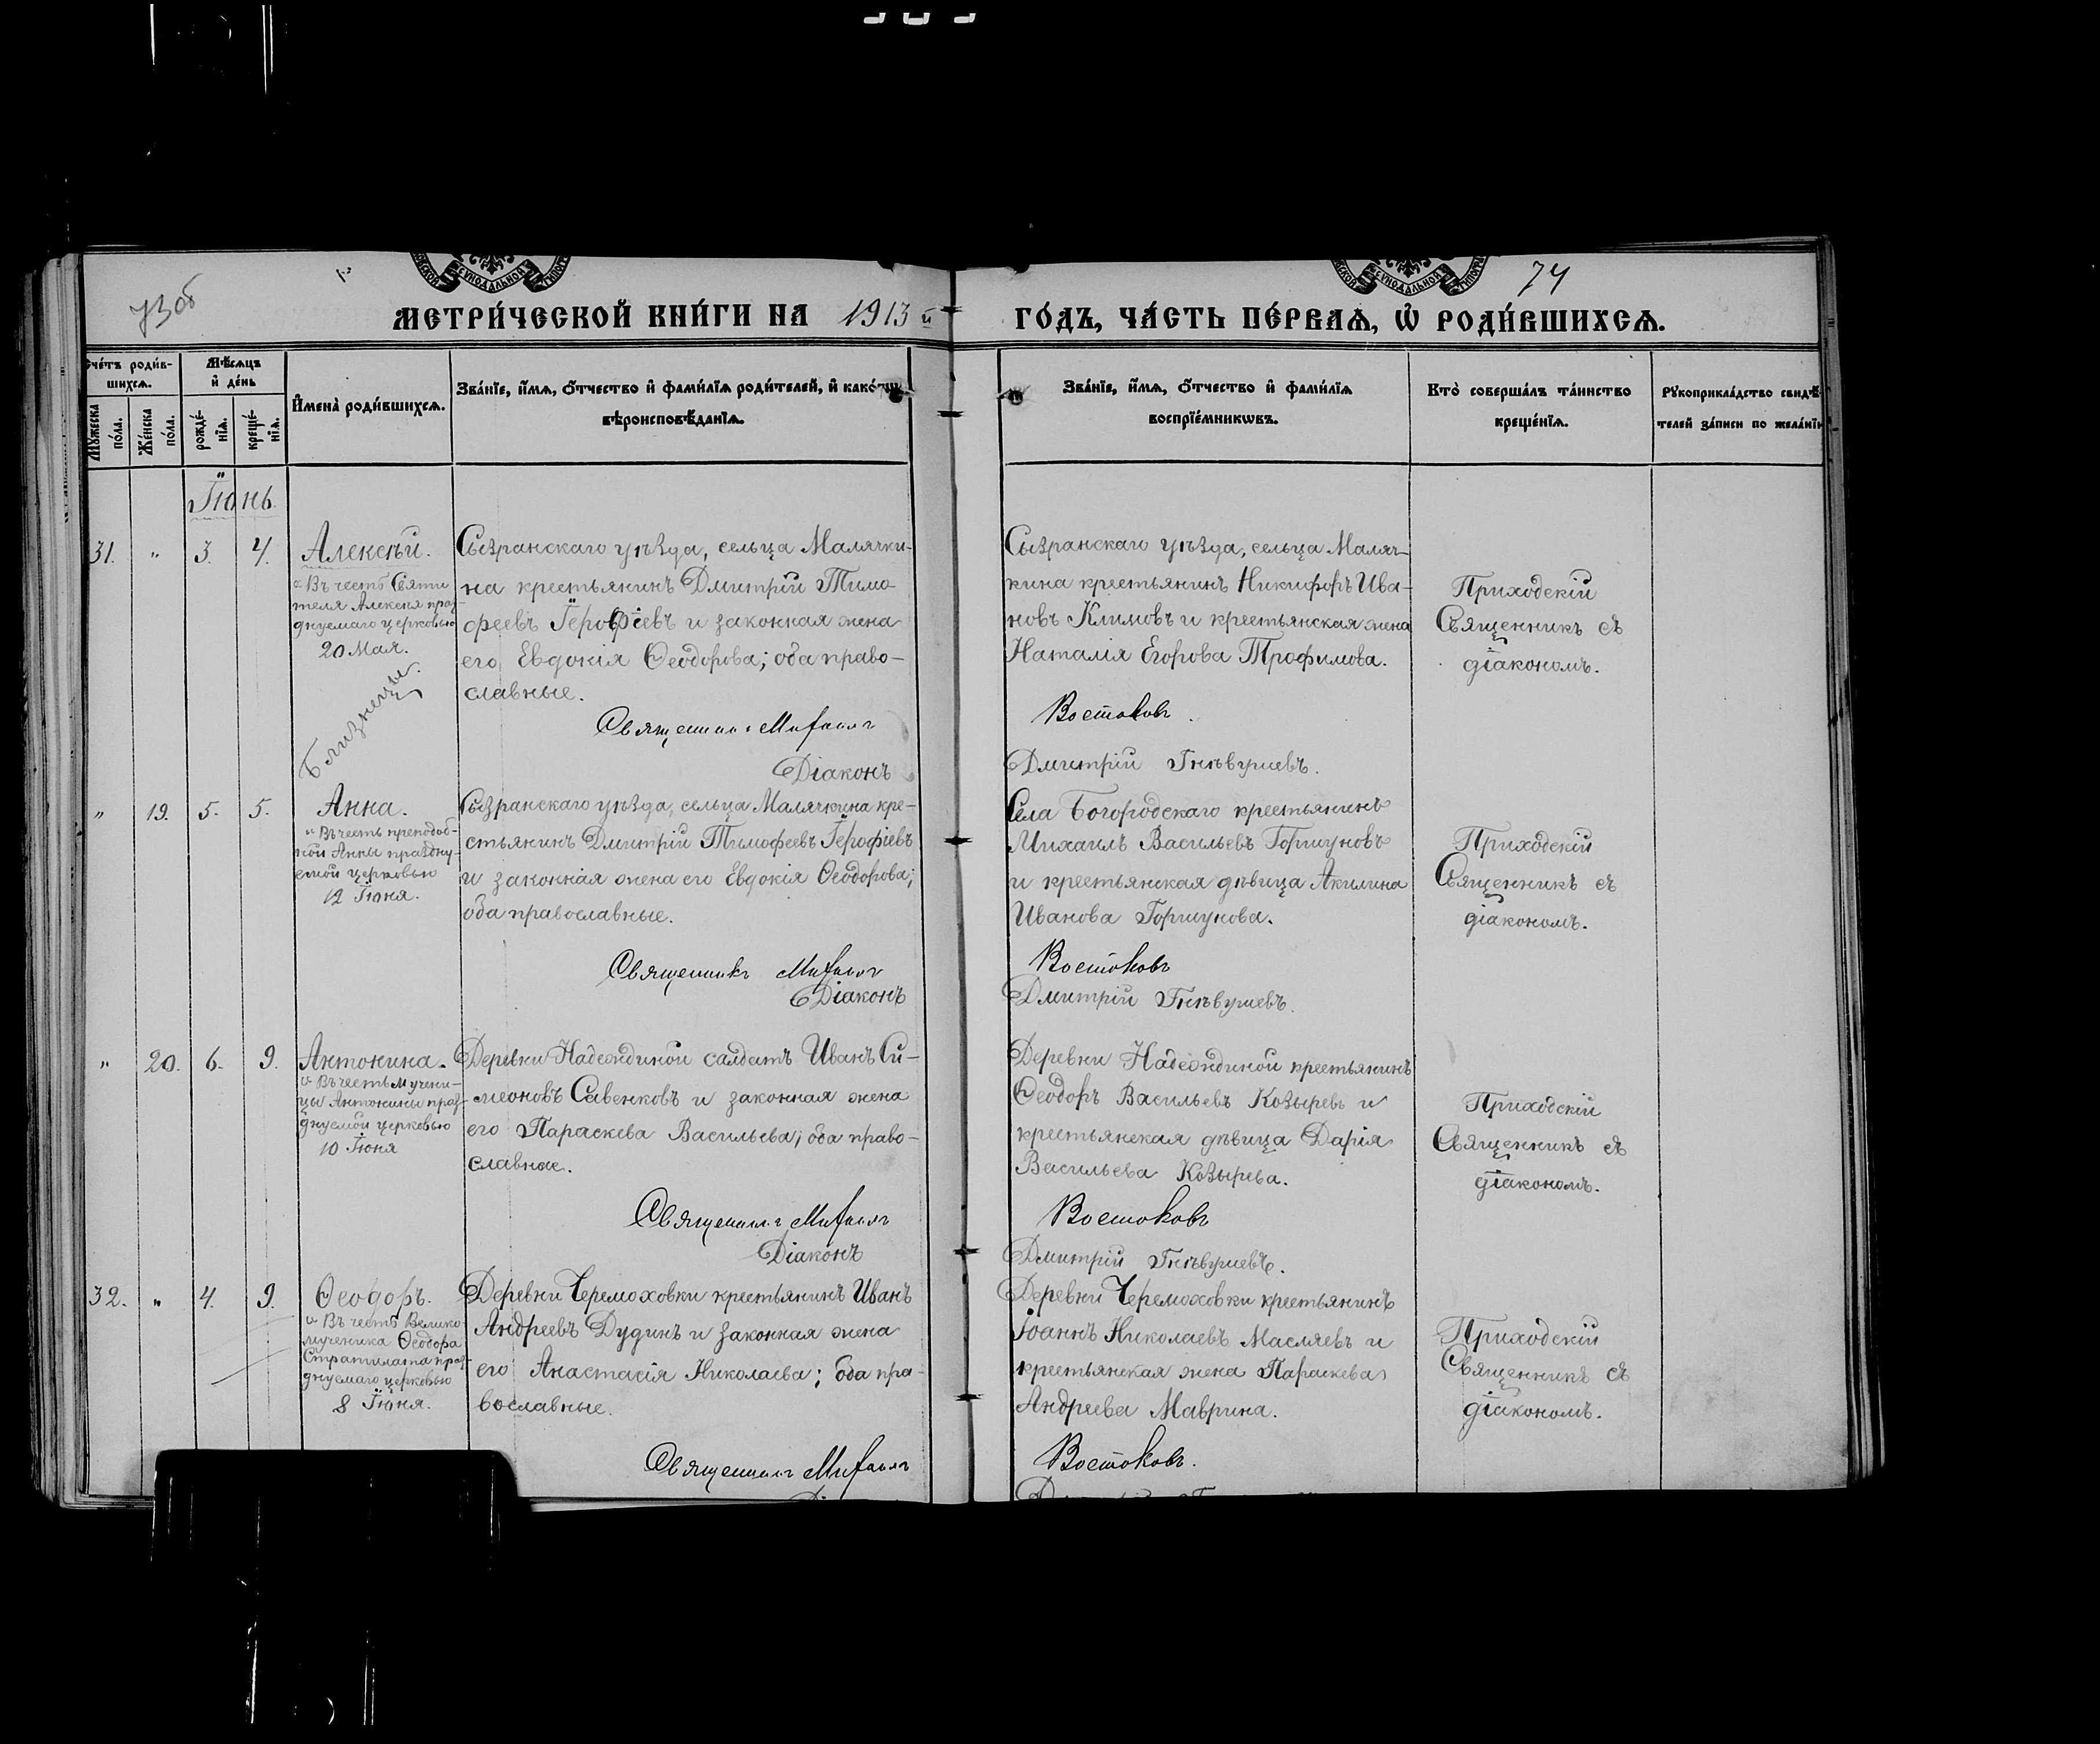 73 об
74
МЕТРИ́ЧЕСКОЙ КНИ́ГИ НА 1913 й ГО́ДЪ, ЧА́СТЬ ПЕ́РВАѦ, Ѡ҆ РОДИ́ВШИХСѦ.
Счетъ роди́в-
шихсѧ.
Мѣ́сѧцъ
и҆ де́нь
И҆мена̀ роди́вшихсѧ.
Зва́нїе, и҆́мѧ, ѻ҆́тчество и҆ фами́лїѧ роди́телей, и҆ како́гѡ
вѣроисповѣ́данїѧ.
Зва́нїе, и҆́мѧ, ѻ҆́тчество и҆ фами́лїѧ
воспрїе́мникѡвъ.
Кто̀ соверша́лъ та́инство
креще́нїѧ.
Рꙋкоприкла́дство свидѣ́-
телей за́писи по жела́нїю
Мꙋ́жеска
по́ла.
Же́нска
по́ла.
рожде́-
нїѧ.
креще́-
нїѧ.
Іюнь.
31. " 3. 4. Алексѣй.
Въ честь Святи
теля Алексѣя праз-
днуемаго церковью
20 Мая.
Близнецы.
Сызранскаго уѣзда, сельца Малячки-
на крестьянинъ Дмитрій Тимо
феевъ Іерофіевъ и законная жена
его Евдокія Ѳеодорова; оба право-
славные.
Священникъ Михаилъ
Діаконъ
Сызранскаго уѣзда, сельца Маляч-
кина крестьянинъ Никифоръ Ива-
новъ Климовъ и крестьянская жена
Наталія Егорова Трофимова.
Востоковъ.
Дмитрій Гнѣвушевъ.
Приходскій
Священникъ съ
діакономъ.
" 19. 5. 5. Анна.
Въ честь преподоб-
ной Анны праздну-
емой церковью
12 Іюня.
Сызранскаго уѣзда, сельца Малячкина кре-
стьянинъ Дмитрій Тимофеевъ Іерофіевъ
и законная жена его Евдокія Ѳеодорова;
оба православные.
Священникъ Михаилъ
Діаконъ
Села Богородскаго крестьянинъ
Михаилъ Васильевъ Горшуновъ
и крестьянская дѣвица Акилина
Иванова Горшунова.
Востоковъ
Дмитрій Гнѣвушевъ.
Приходскій
Священникъ съ
діакономъ.
" 20. 6. 9. Антонина.
Въ честь мучени-
цы Антонины праз-
днуемой церковью
10 Іюня
Деревни Надеждиной салдатъ Иванъ Си-
меоновъ Савенковъ и законная жена
его Параскева Васильева; оба право-
славные.
Священникъ Михаилъ
Діаконъ
Деревни Надеждиной крестьянинъ
Ѳеодоръ Васильевъ Козыревъ и
крестьянская дѣвица Дарія
Васильева Козырева.
Востоковъ
Дмитрій Гнѣвушевъ.
Приходскій
Священникъ съ
діакономъ.
32. " 4. 9. Ѳеодоръ.
Въ честь Велико-
мученика Ѳеодора
Стратилата праз-
днуемаго церковью
8 Іюня.
Деревни Черемоховки крестьянинъ Иванъ
Андреевъ Дудинъ и законная жена
его Анастасія Николаева; оба пра-
вославные.
Священникъ Михаилъ
Деревни Черемоховки крестьянинъ
Іоаннъ Николаевъ Масляевъ и
крестьянская жена Параскева
Андреева Маврина.
Востоковъ.
Приходскій
Священникъ съ
діакономъ.